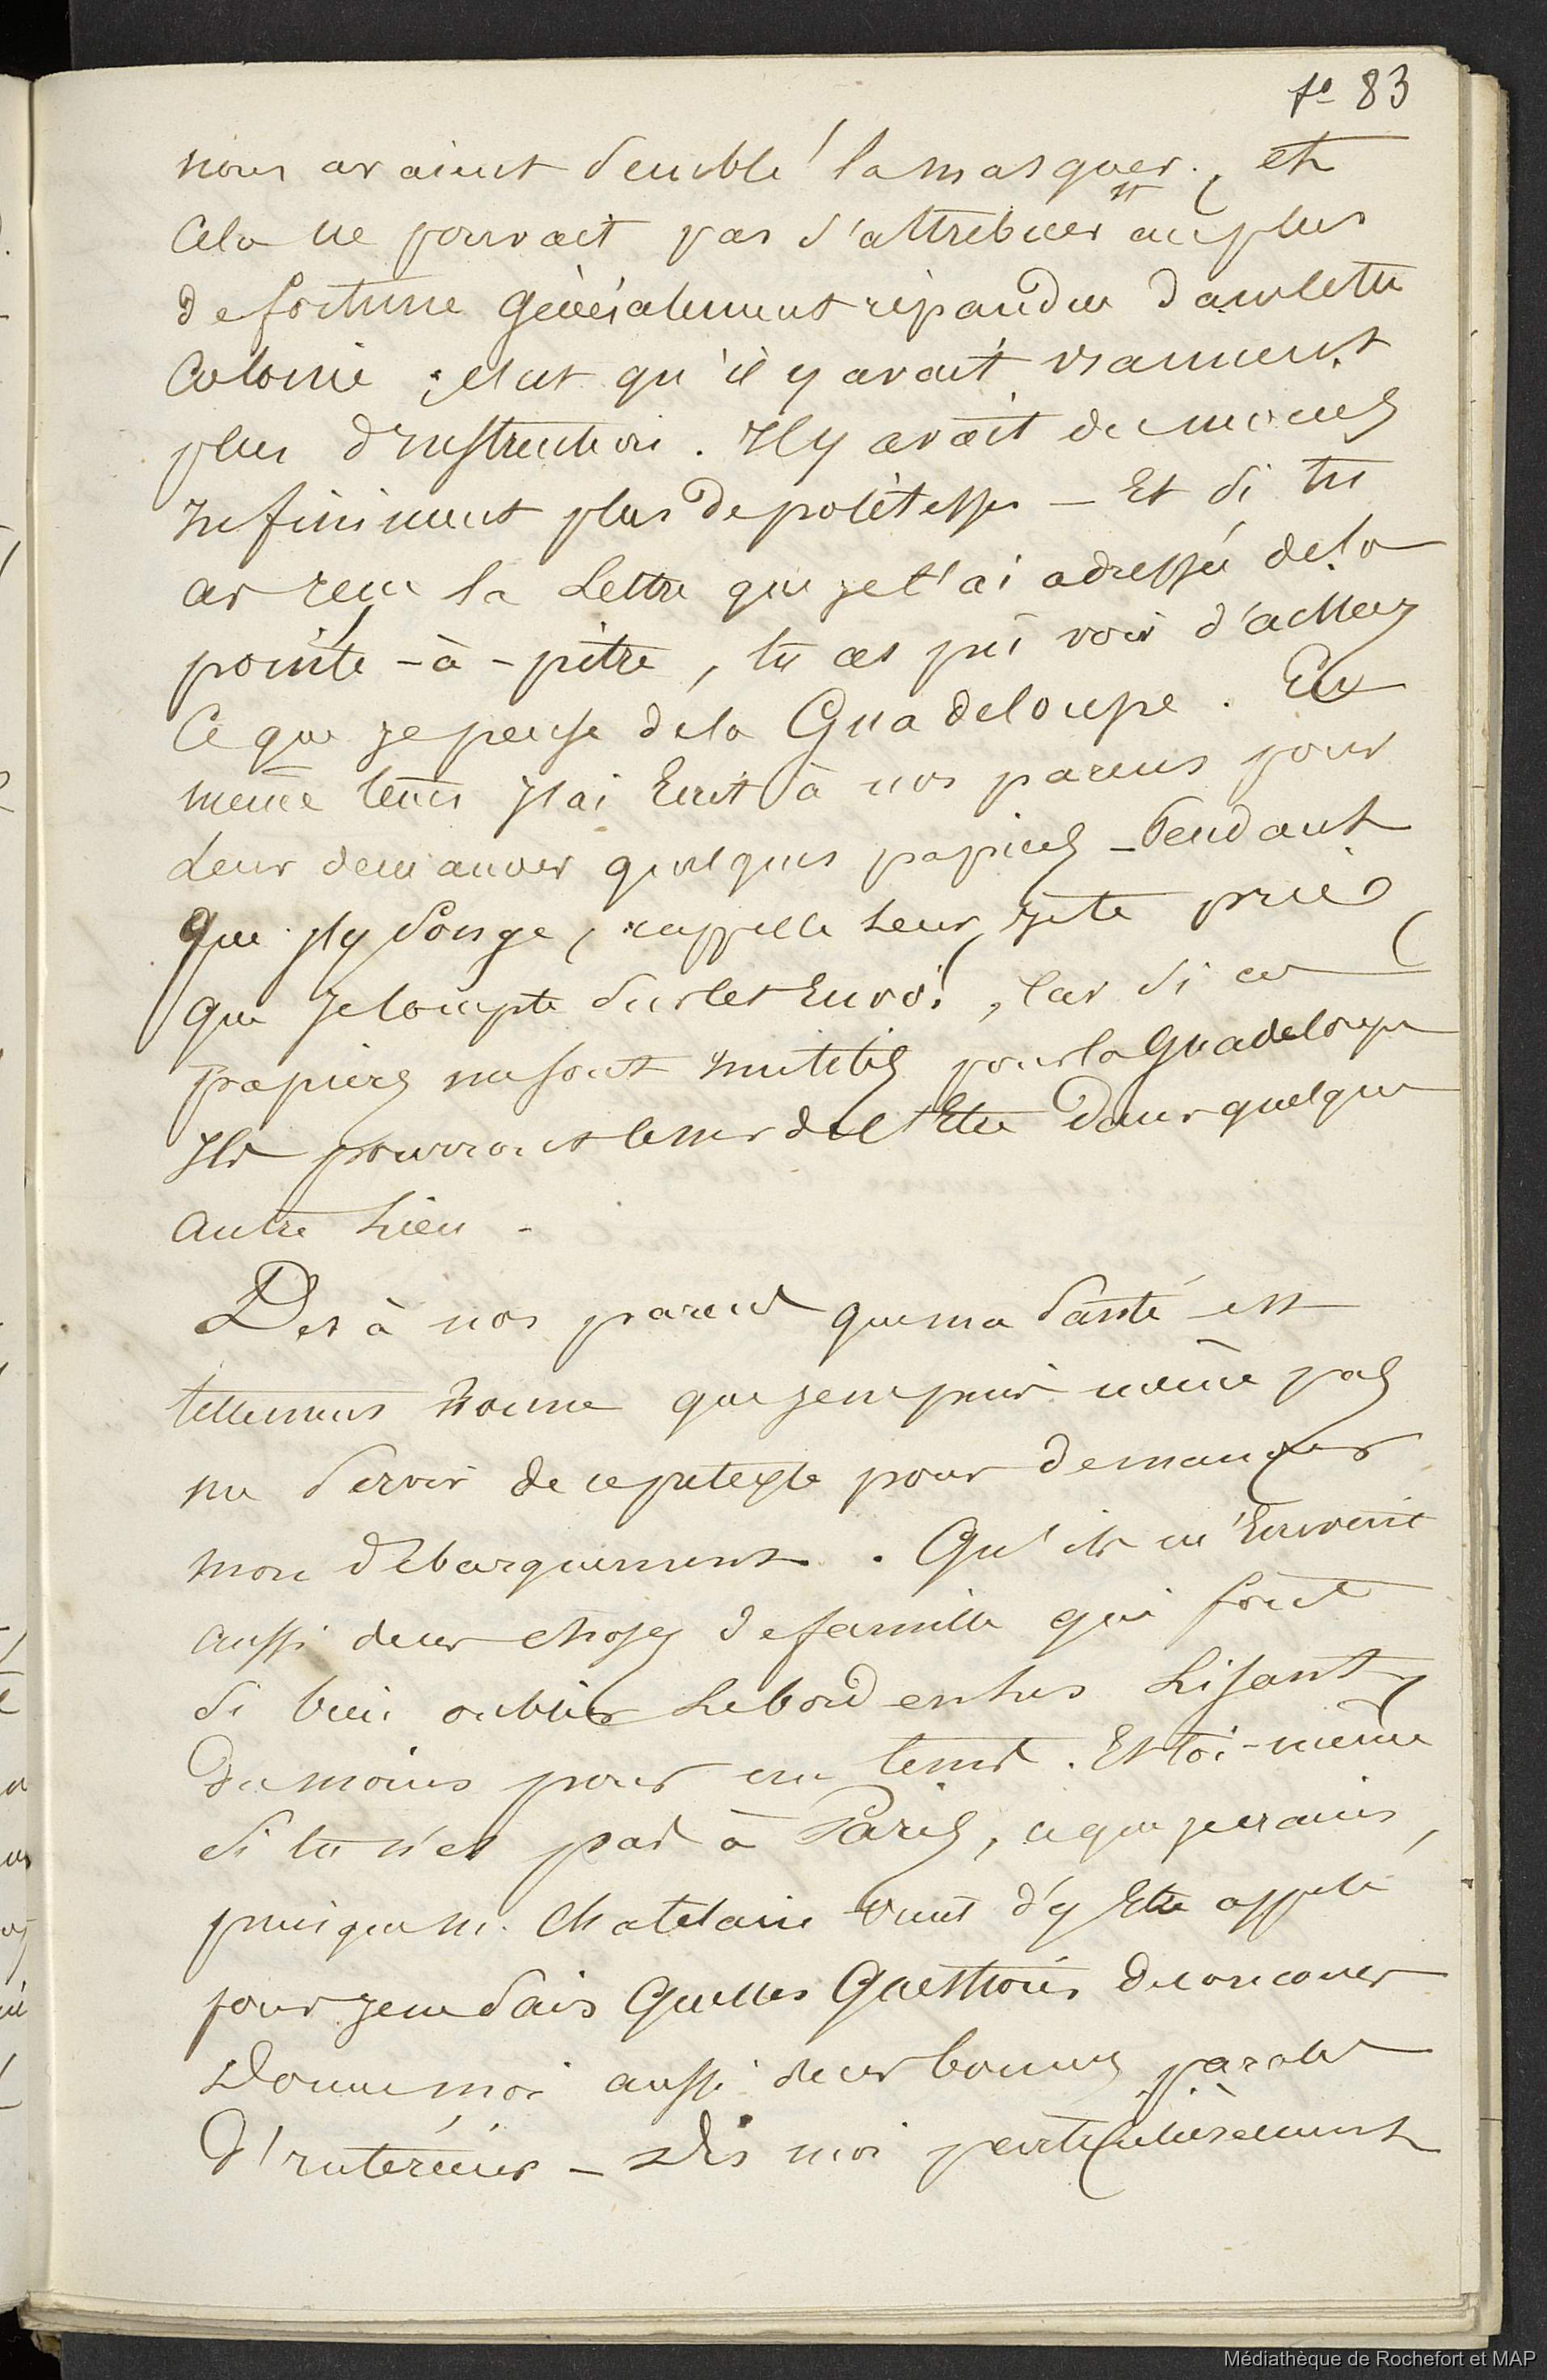 fo 83
nous avaient semblé la masquer, et
Cela ne pouvait pas s'attribuer au plus
de fortune généralement répandue dans cette
Colonie ; c'est qu'il y avait vraiment
plus d'instruction. Il y avait du moins
Infiniment plus de politesse — Et si tu
as reçu la Lettre que je t'ai adressée de la
pointe-à-pitre, tu as pu voir d'assez
Ce que je pense de la Guadeloupe. En
même tems j'ai Ecrit à nos parens pour
Leur demander quelques papiers — Pendant
que j'y songe, rappelle Leur, je te prie
que Je compte sur cet Envoi, Car si ces
papiers me sont inutiles pour la Guadeloupe
Ils pourront cesser de l'Etre dans quelque
autre Lieu -
Dis à nos parens que ma santé est
tellement bonne que je ne puis même pas
me servir de ce prétexte pour demander
mon débarquement. Qu'ils m'Envoient
aussi de ces choses de famille qui font
si bien oublier Le bord en les Lisant,
du moins pour un tems. Et toi-même
si tu n'es pas à Paris, ce que je crains,
puisque M. Chatelain vient d'y Etre appelé
pour je ne sais quelles Questions de concours
Donne moi aussi de ces bonnes paroles
D'intérieur — Dis moi particulièrement
Médiathèque de Rochefort et MAP